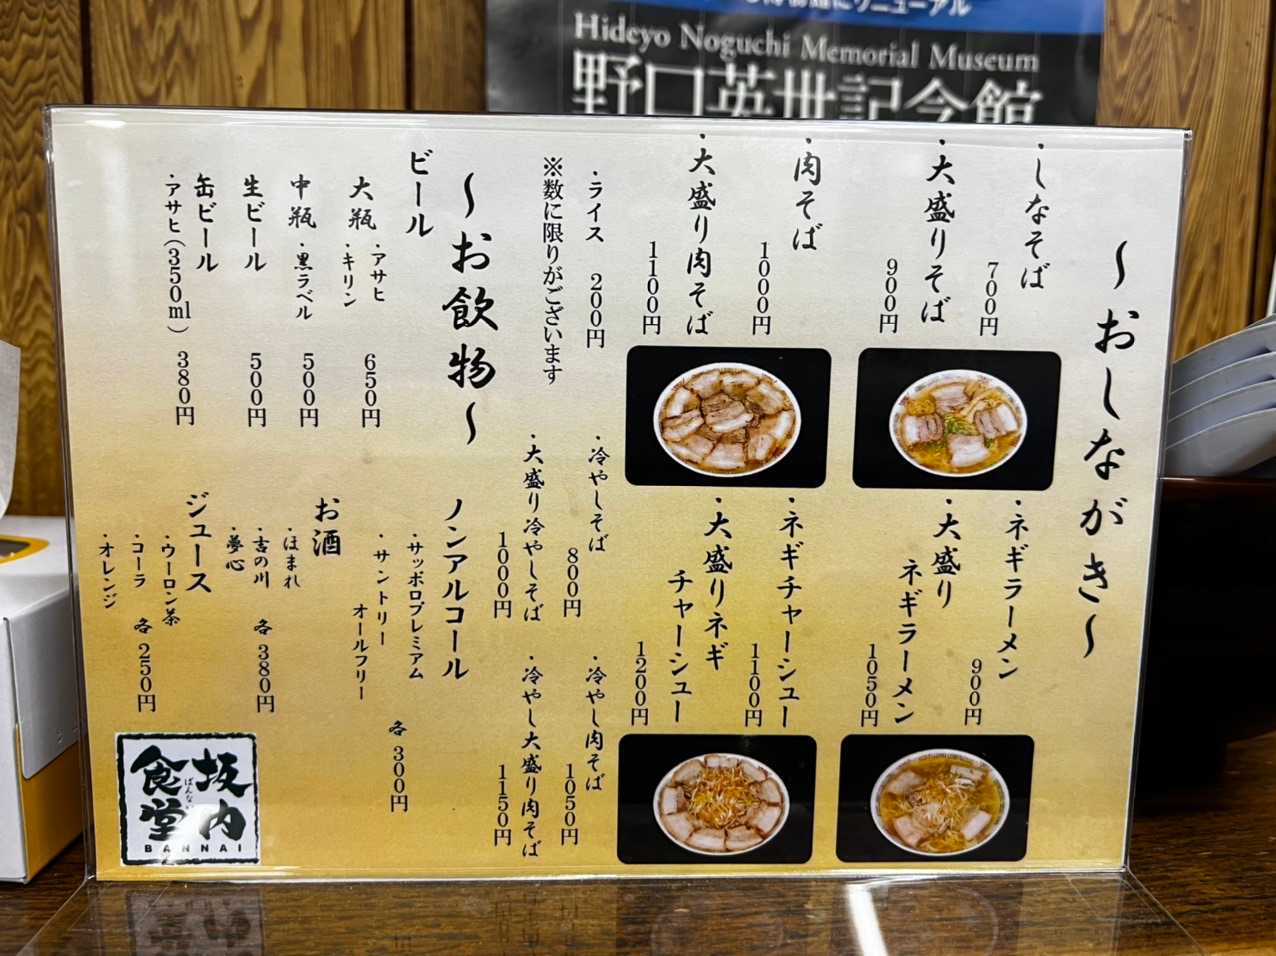 Hideyo Noguchi Memorial Museum
野口英世記念館
～おしながき～
・しなそば
700円
・大盛りそば
900円
・肉そば
1000円
・大盛り肉そば
1100円
・ライス 200円
※数に限りがございます
・ネギラーメン
900円
・大盛り
ネギラーメン
1050円
・ネギチャーシュー
1100円
・大盛りネギ
チャーシュー
1200円
・冷やしそば
800円
・大盛り冷やしそば
1000円
・冷やし肉そば
1050円
・冷やし大盛り肉そば
1150円
～お飲物～
ビール
大瓶 ・アサヒ
・キリン
650円
中瓶 ・黒ラベル 500円
生ビール 500円
缶ビール
・アサヒ(350ml) 380円
ノンアルコール
・サッポロプレミアム
・サントリー
オールフリー
各300円
お酒
・ほまれ
・古の川
・夢心
各380円
ジュース
・ウーロン茶
・コーラ
・オレンジ
各250円
坂内
食堂
BANNAI